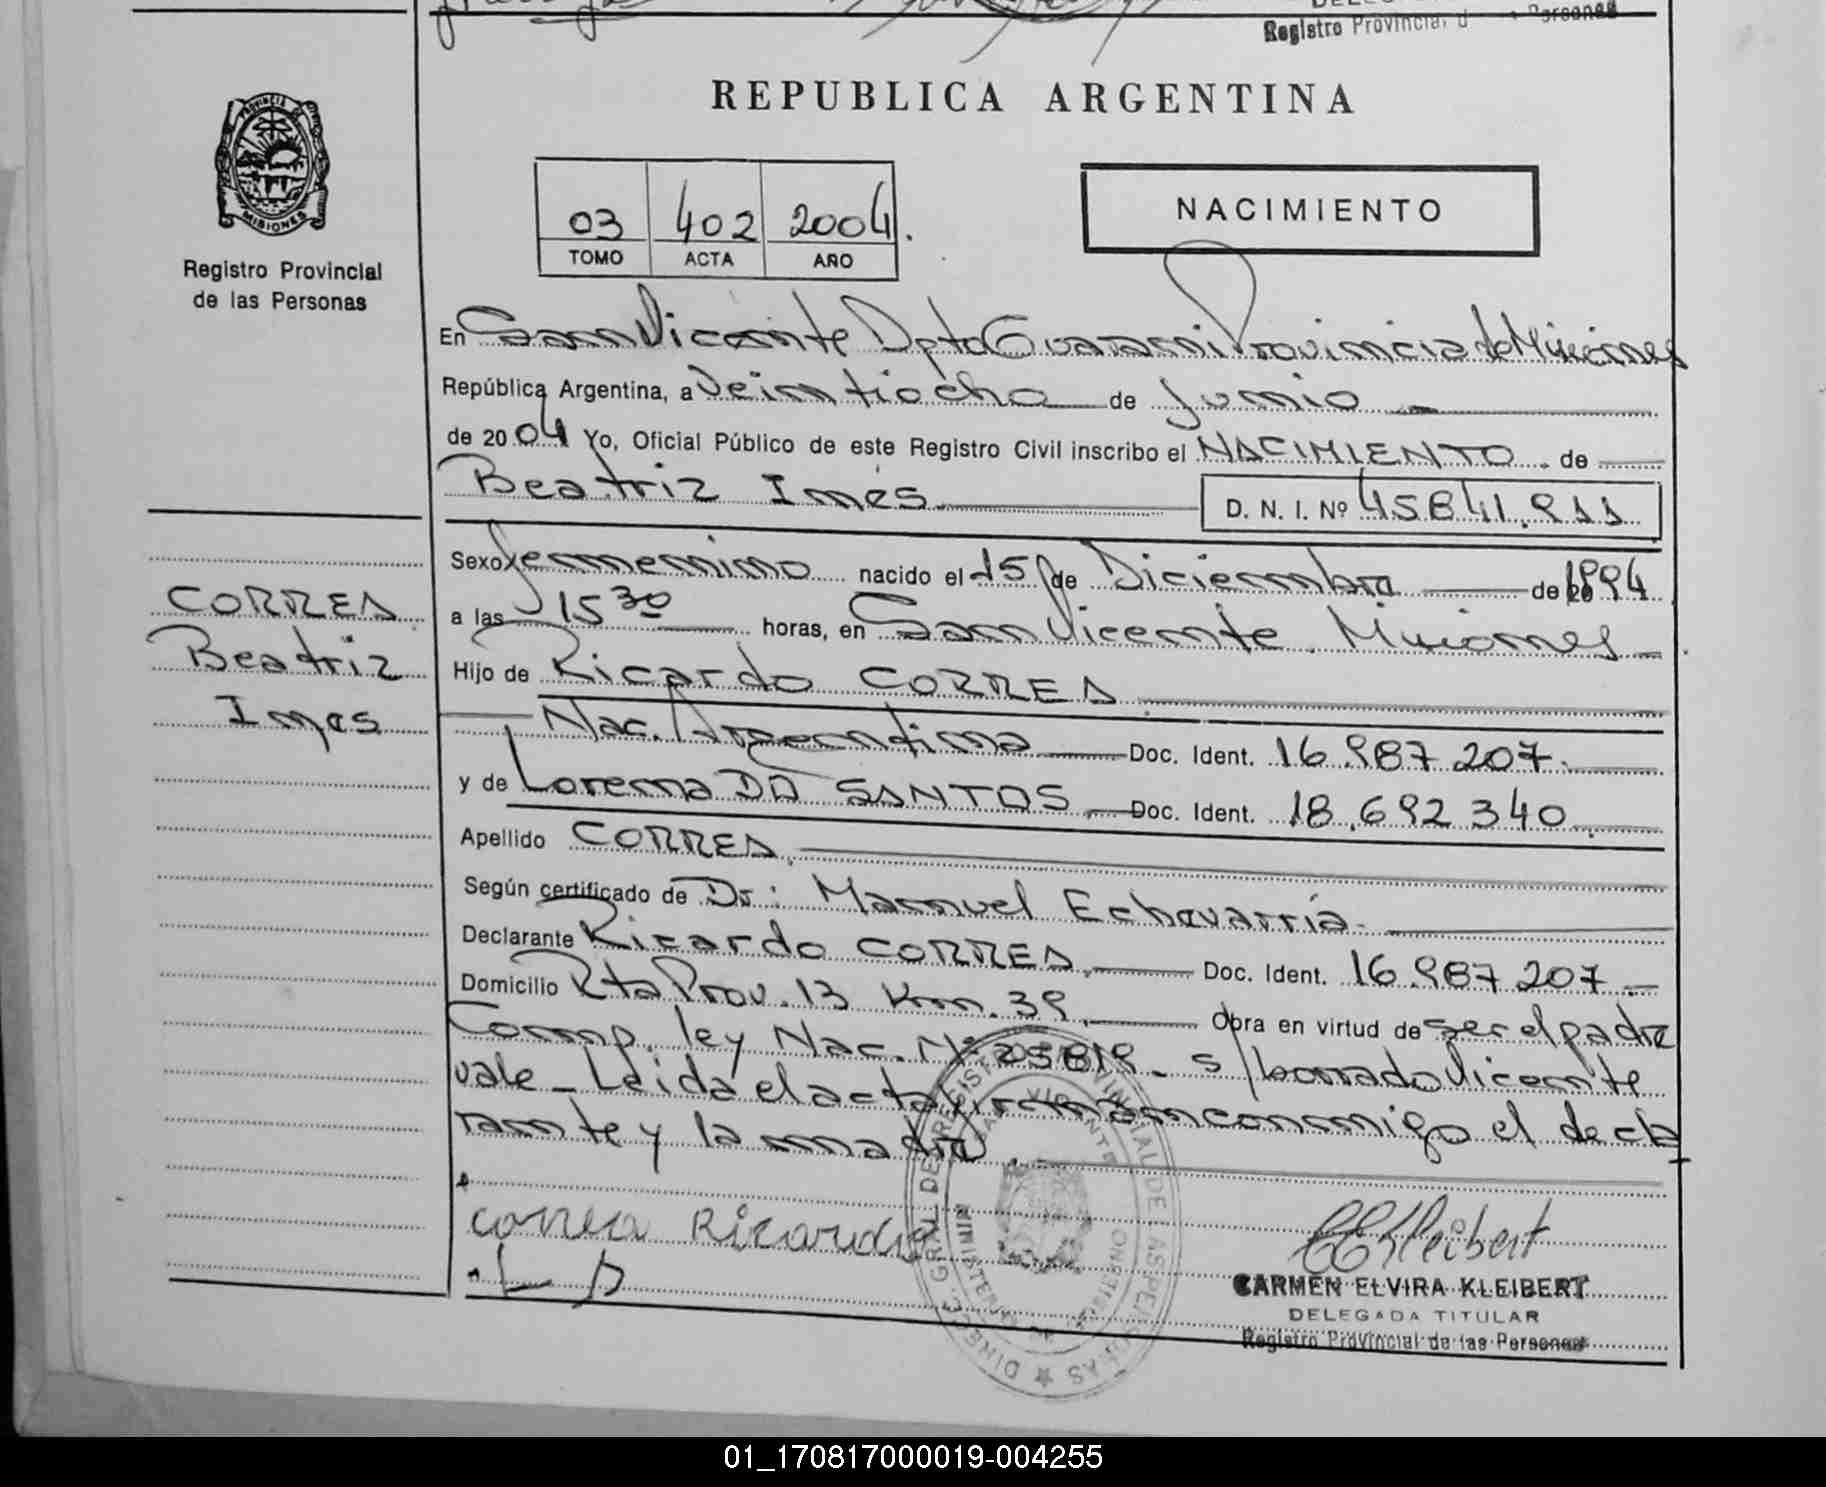 Registro Provincial d Personas
PROVINCIA DE
MISIONES
Registro Provincial
de las Personas
REPUBLICA ARGENTINA
03 402 2004.
TOMO ACTA AÑO
NACIMIENTO
En San Vicente Dpto Guarani Provincia de Misiones
República Argentina, a Veintiocho de Junio
de 2004 Yo, Oficial Público de este Registro Civil inscribo el NACIMIENTO de
Beatriz Ines D. N. I. Nº 45841.911
CORREA
Beatriz
Ines
Sexo femenino nacido el 15 de Diciembre de 1994
a las 15 30 horas, en San Vicente Misiones
Hijo de Ricardo CORREA
Nac. Argentina Doc. Ident. 16.987 207.
y de Lorena DA SANTOS Doc. Ident. 18.692 340
Apellido CORREA
Según certificado de Dr: Manuel Echavarría
Declarante Ricardo CORREA Doc. Ident. 16.987 207
Domicilio Rta Prov. 13 Km. 39 Obra en virtud de ser el padre
Comp. ley Nac. Nº 25819 - s/borrado Vicente
vale - Leída el acta firman conmigo el decla
rante y la madre.
Correa Ricardo
L D
CARMEN ELVIRA KLEIBERT
DELEGADA TITULAR
Registro Provincial de las Personas
01_170817000019-004255